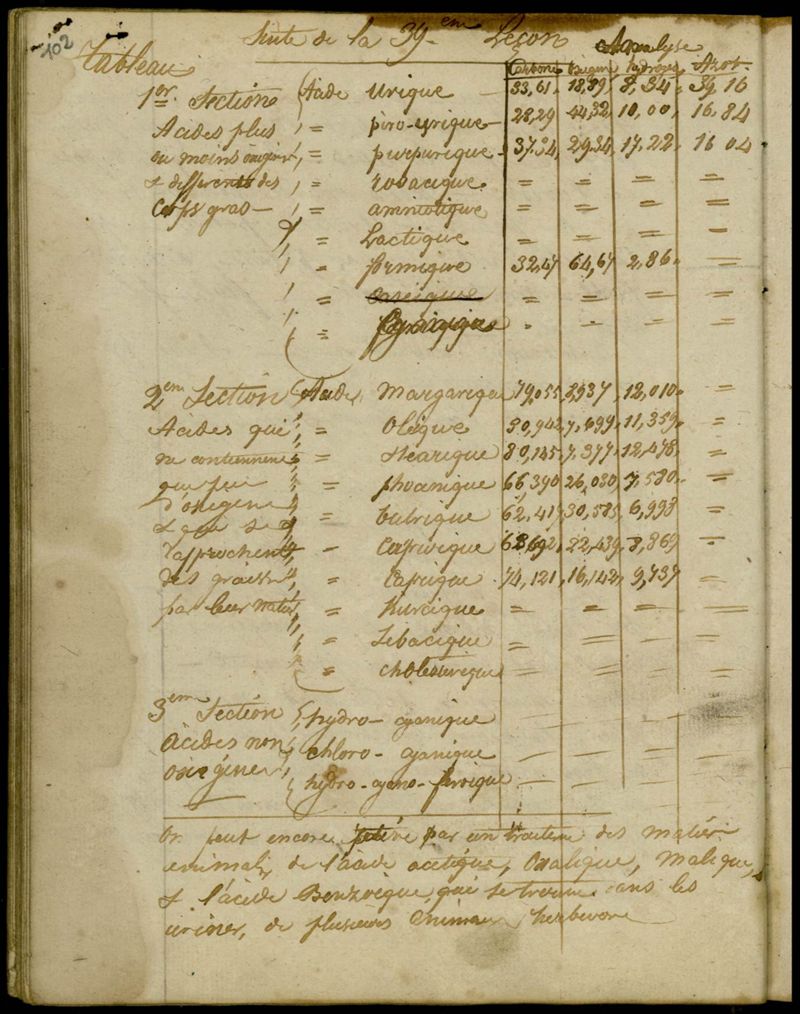 102
Suite de la 39em Leçon Analyse
Tableau
Carbone Oxigene hydrogene Azot.
1er Section Acide Urique 33,61 18,89 8,34 39 16
Acides plus = piro-urique 28,29 44,32 10,00 16,84
ou moins = purpurique 37,34 29,34 17,22 16 04
& differents des = rosacique = = = =
Corps gras = amniotique = = = =
= Lactique = = = =
= formique 32,47 64,67 2,86 =
= = = = =
=
2em Section Acide Margarique 79,055 12,010 =
Acides qui = Oleique 11,359 =
ne contiennent = stearique 80,145 7,377 12,478 =
que peu = phocenique 66,390 26,030 7,580 =
d'oxigene = butirique 62,417 30,585 6,998 =
& qui se = 22,439 8,869 =
rapprochent = Caprique 74,121 16,142 9,737 =
des graisses = = = = =
par leur nature = Sebacique = = = =
= cholesterique = = = =
3em Section hydro-cyanique
Acides non chloro-cyanique
oxigénés hydro-cyano-ferrique
On peut encore par un traitem des matiér
animals de l'acide acetique, Oxalique, Malique,
& l'acide Benzoique que se trouve dans les
urines, de plusieurs animaux herbivore